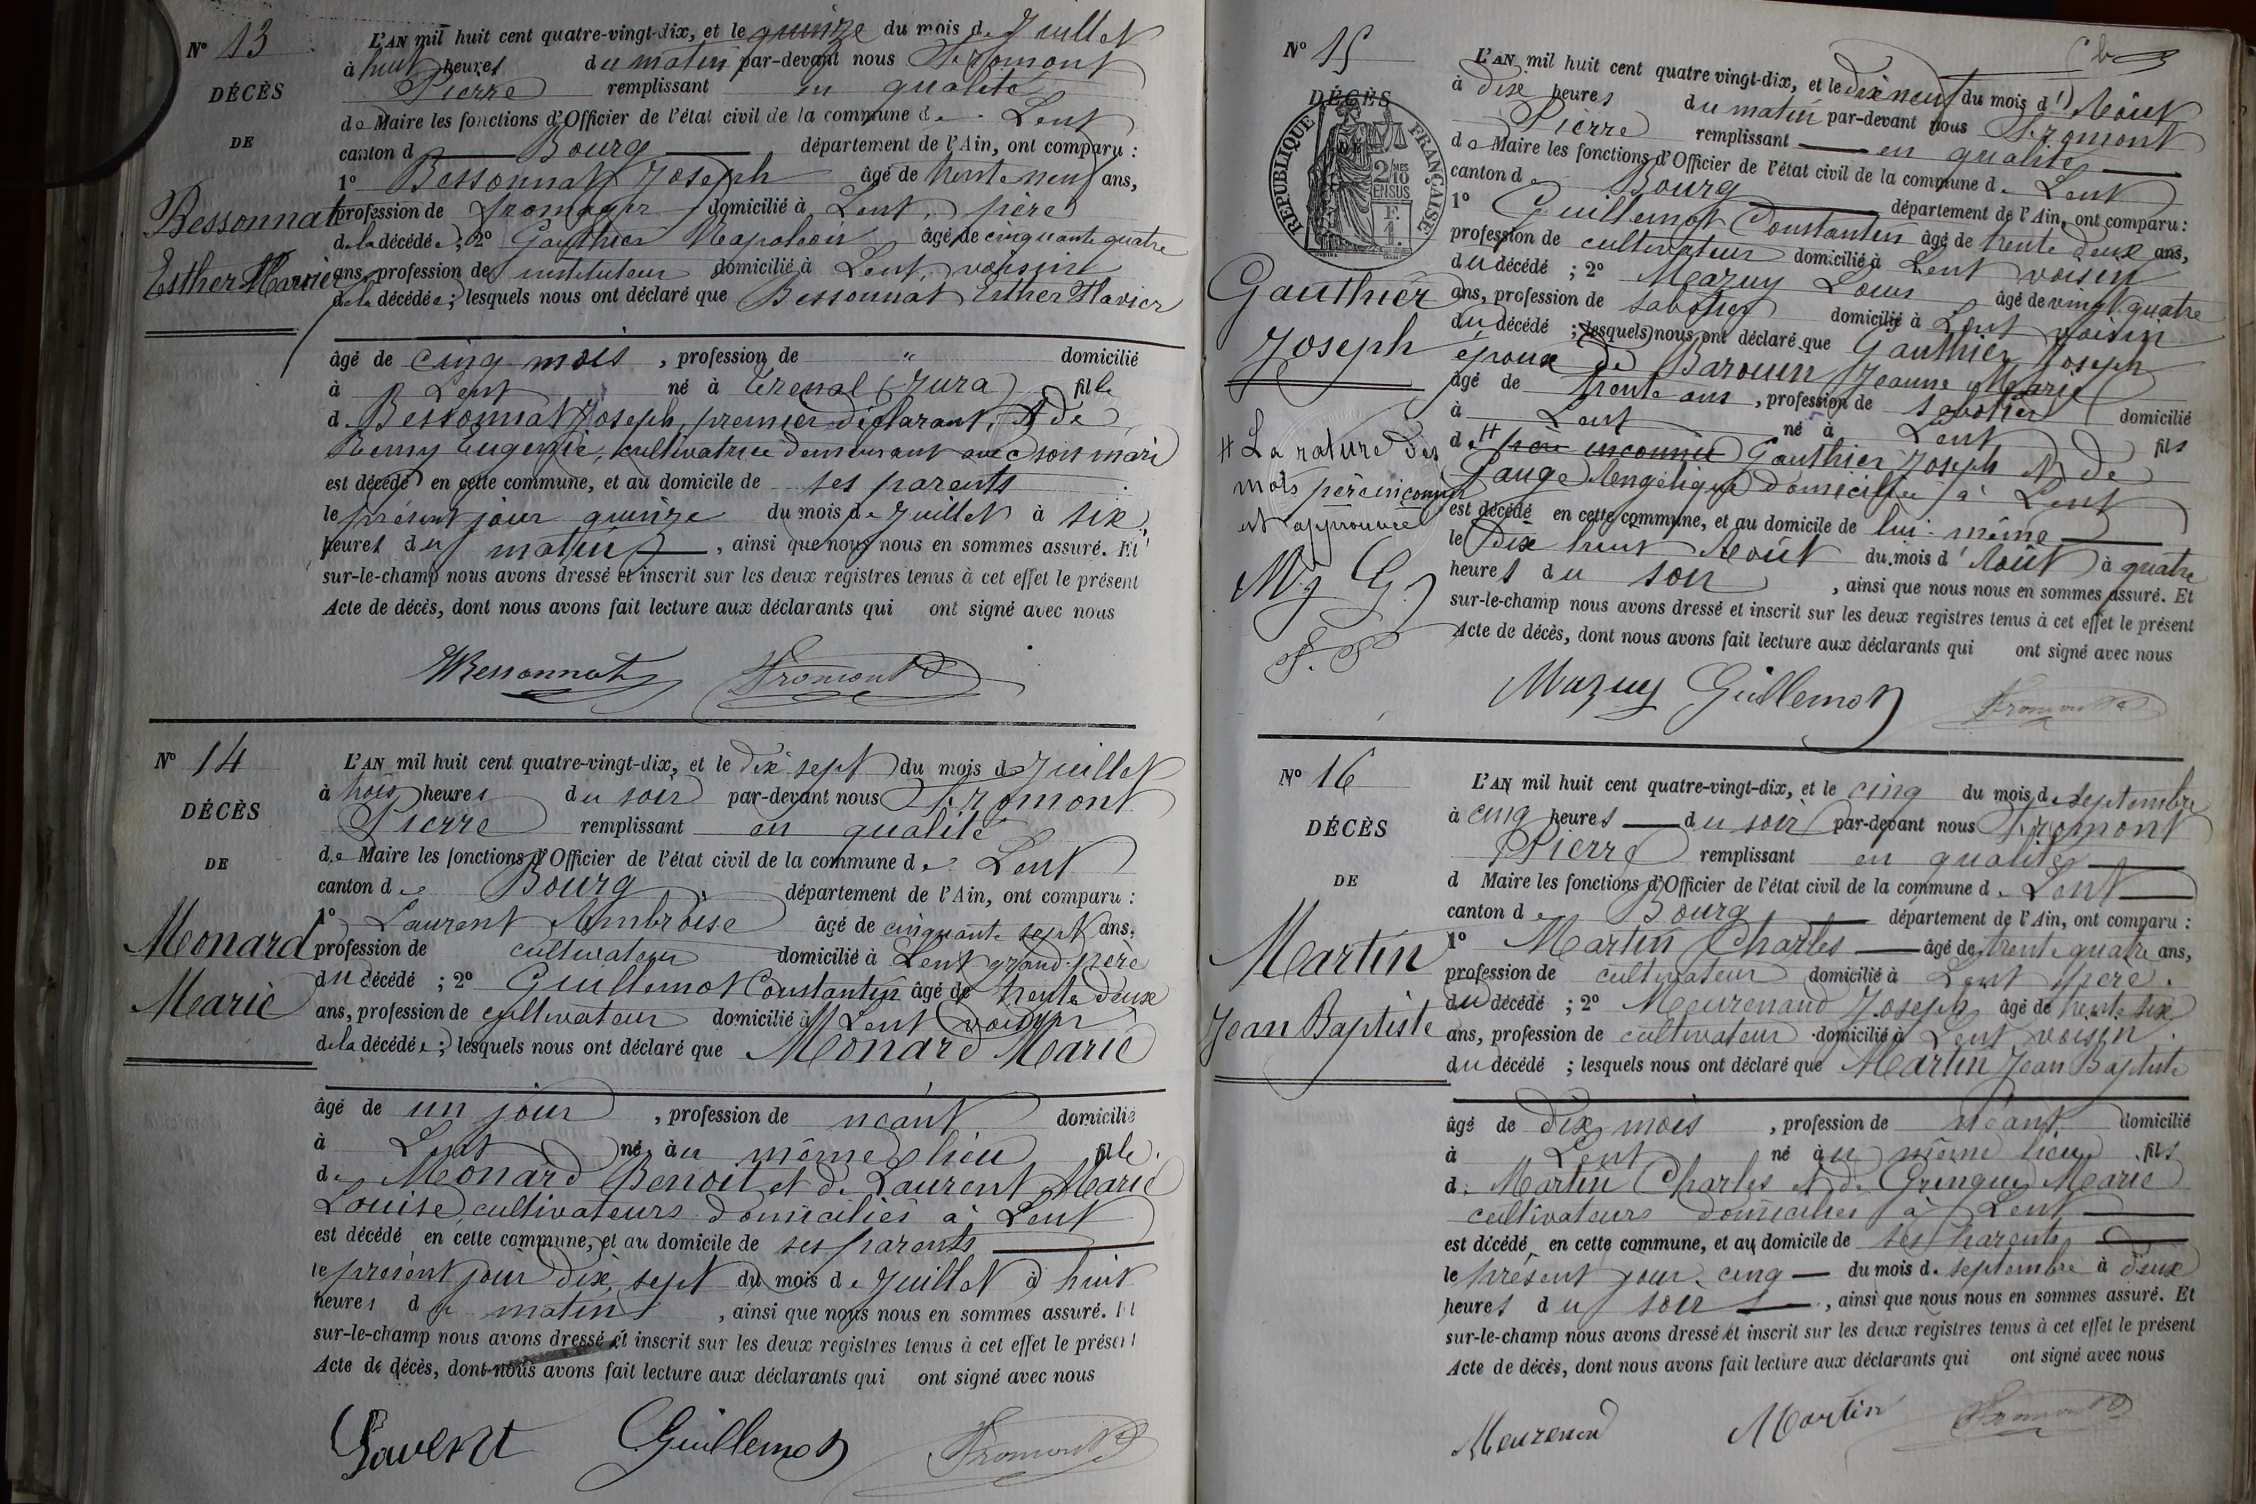 N° 13
DÉCÈS
DE
Bessonnat
Esther Marrie
L'AN mil huit cent quatre-vingt-dix, et le quinze du mois de Juillet
à huit heures du matin par-devant nous Fromont
Pierre remplissant en qualité
de Maire les fonctions d'Officier de l'état civil de la commune de Lent
canton d Bourg département de l'Ain, ont comparu :
1° Bessonnat Joseph âgé de trente neuf ans,
profession de fromager domicilié à Lent, père
de la décédée ; 2° Gauthier Napoléon âgé de cinquante quatre
ans, profession de instituteur domicilié à Lent, voisin
de la décédée ; lesquels nous ont déclaré que Bessonnat Esther
âgé de cinq mois , profession de " domicilié
à Lent né à Trenal (Jura) fille
d Bessonnat Joseph, premier déclarant, et de
Remy Eugenie, cultivatrice demeurant avec son mari
est décédé en cette commune, et au domicile de ses parents
le présent jour quinze du mois de Juillet à six
heures du matin , ainsi que nous nous en sommes assuré. Et
sur-le-champ nous avons dressé et inscrit sur les deux registres tenus à cet effet le présent
Acte de décès, dont nous avons fait lecture aux déclarants qui ont signé avec nous
Bessonnat Fromont
N° 14
DÉCÈS
DE
Monard
Marie
L'AN mil huit cent quatre-vingt-dix, et le dix sept du mois de Juillet
à trois heures du soir par-devant nous Fromont
Pierre remplissant en qualité
de Maire les fonctions d'Officier de l'état civil de la commune de Lent
canton de Bourg département de l'Ain, ont comparu :
1° Laurent Ambroise âgé de cinquante sept ans,
profession de cultivateur domicilié à Lent grand-père
du décédé ; 2° Guillemot Constantin âgé de trente deux
ans, profession de cultivateur domicilié à Lent voisin
de la décédée ; lesquels nous ont déclaré que Monard Marie
âgé de un jour , profession de néant domicilié
à Lent né au même lieu fille
de Monard Benoit et de Laurent Marie
Louise, cultivateurs domiciliés à Lent
est décédé en cette commune, et au domicile de ses parents
le présent jour dix sept du mois de Juillet à huit
heures du matin , ainsi que nous nous en sommes assuré. Et
sur-le-champ nous avons dressé et inscrit sur les deux registres tenus à cet effet le présent
Acte de décès, dont nous avons fait lecture aux déclarants qui ont signé avec nous
Guillemot Fromont
N° 15
DÉCÈS
DE
RÉPUBLIQUE FRANÇAISE
2/10 MES
EN SUS
F.
1.
Gauthier
Joseph
# La rature des
mots père inconnu
est approuvée
M. j G. j
f. P
L'AN mil huit cent quatre vingt-dix, et le dix neuf du mois d' Août
à dix heures du matin par-devant nous Fromont
Pierre remplissant en qualité
de Maire les fonctions d'Officier de l'état civil de la commune de Lent
canton de Bourg département de l'Ain, ont comparu :
1° Guillemot Constantin âgé de trente deux ans,
profession de cultivateur domicilié à Lent voisin
du décédé ; 2° Mazuy Louis âgé de vingt quatre
ans, profession de sabotier domicilié à Lent voisin
du décédé ; lesquels nous ont déclaré que Gauthier Joseph
époux de Barouin Jeanne Marie
âgé de trente ans , profession de sabotier domicilié
à Lent né à Lent fils
de # père inconnu Gauthier Joseph et de
Gauge Angélique domiciliée à Lent
est décédé en cette commune, et au domicile de lui-même
le dix huit Août du mois d' Août à quatre
heures du soir , ainsi que nous nous en sommes assuré. Et
sur-le-champ nous avons dressé et inscrit sur les deux registres tenus à cet effet le présent
Acte de décès, dont nous avons fait lecture aux déclarants qui ont signé avec nous
Mazuy Guillemot Fromont
N° 16
DÉCÈS
DE
Martin
Jean Baptiste
L'AN mil huit cent quatre-vingt-dix, et le cinq du mois de septembre
à cinq heures du soir par-devant nous Fromont
Pierre remplissant en qualité
d Maire les fonctions d'Officier de l'état civil de la commune de Lent
canton de Bourg département de l'Ain, ont comparu :
1° Martin Charles âgé de trente quatre ans,
profession de cultivateur domicilié à Lent père
du décédé ; 2° Meurenand Joseph âgé de trente six
ans, profession de cultivateur domicilié à Lent voisin
du décédé ; lesquels nous ont déclaré que Martin Jean Baptiste
âgé de dix mois , profession de néant domicilié
à Lent né au même lieu fils
de Martin Charles et de Gringue Marie
cultivateurs domiciliés à Lent
est décédé en cette commune, et au domicile de ses parents
le présent jour cinq du mois de septembre à deux
heures du soir , ainsi que nous nous en sommes assuré. Et
sur-le-champ nous avons dressé et inscrit sur les deux registres tenus à cet effet le présent
Acte de décès, dont nous avons fait lecture aux déclarants qui ont signé avec nous
Meurenand Martin Fromont